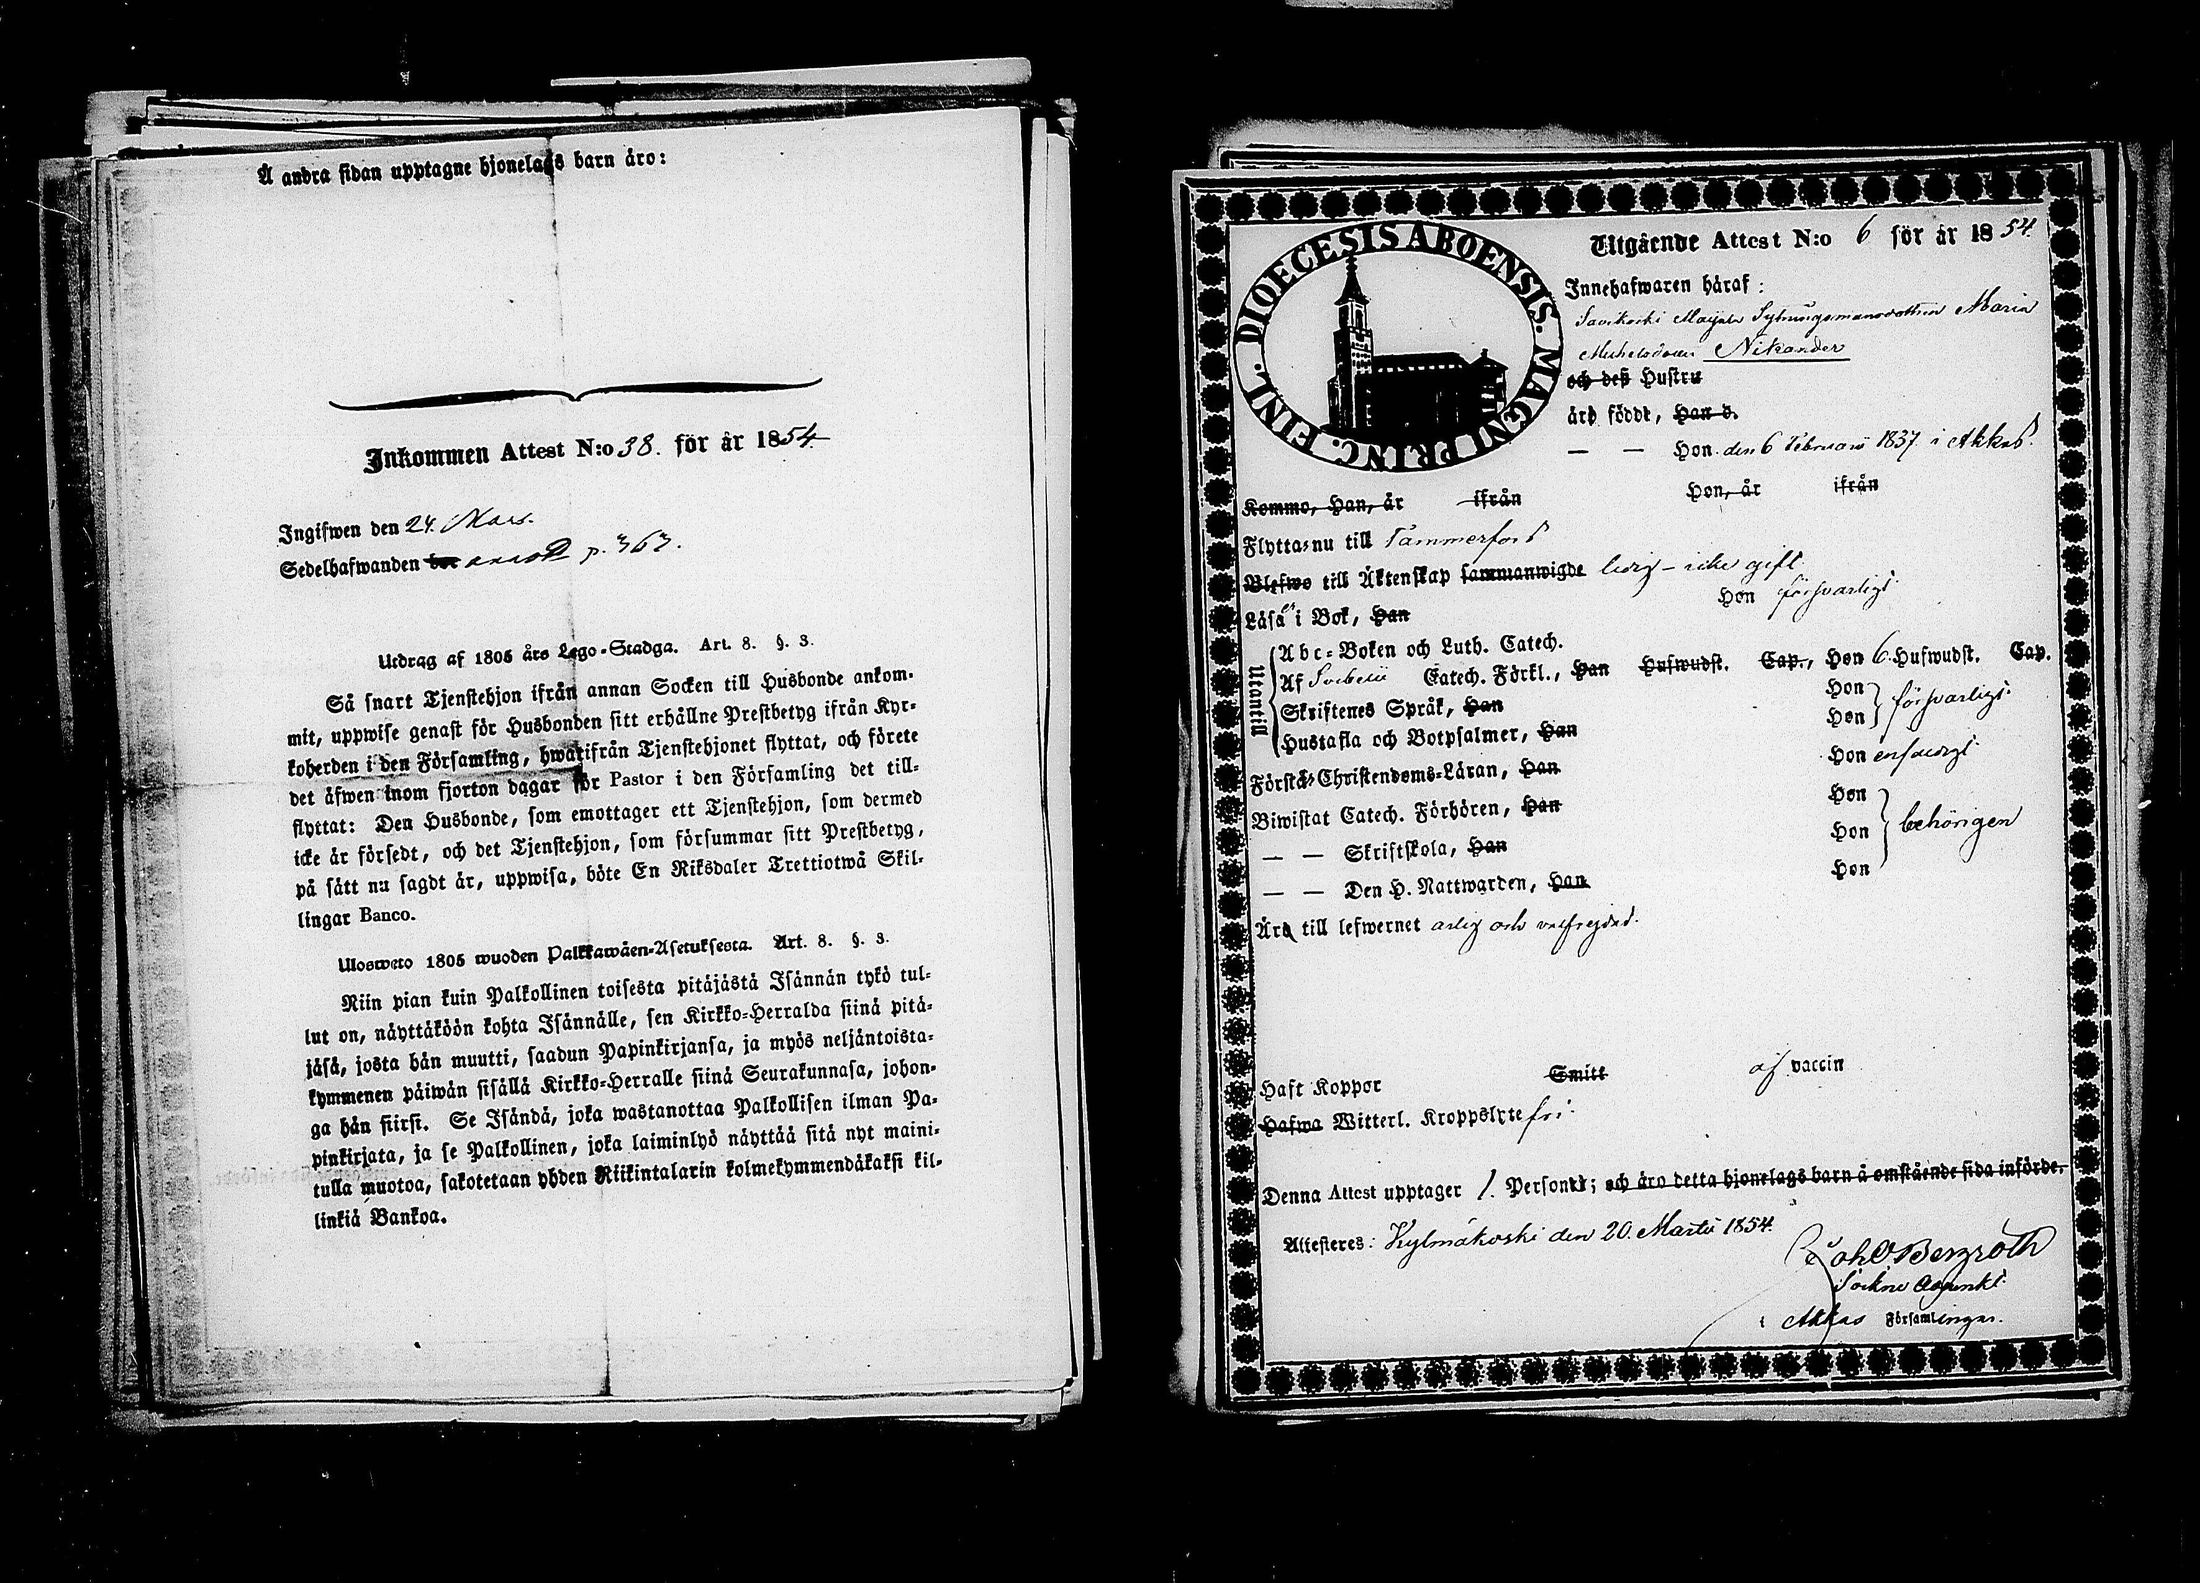 Å andra sidan upptagne hjonelags barn äro:
Inkommen Attest N:o 38. för år 1854
Ingifwen den 24. Mars.
Sedelhafwanden bor p. 363.
Utdrag af 1805 års Lego-Stadga. Art. 8. §. 3.
Så snart Tjenstehjon ifrån annan Socken till Husbonde ankom-
mit, uppwise genast för Husbonden sitt erhållne Prestbetyg ifrån Kyr-
koherden i den Församling, hwarifrån Tjenstehjonet flyttat, och förete
det äfwen inom fjorton dagar för Pastor i den Församling det till-
flyttat: Den Husbonde, som emottager ett Tjenstehjon, som dermed
icke är försedt, och det Tjenstehjon, som försummar sitt Prestbetyg,
på sätt nu sagdt är, uppwisa, böte En Riksdaler Trettiotwå Skil-
lingar Banco.
Ulosweto 1805 wuoden Palkkawäen-Asetuksesta. Art. 8. §. 3.
Niin pian kuin Palkollinen toisesta pitäjästä Isännän tykö tul-
lut on, näyttäköön kohta Isännälle, sen Kirkko-Herralda siinä pitä-
jäsä, josta hän muutti, saadun Papinkirjansa, ja myös neljäntoista-
kymmenen päiwän sisällä Kirkko-Herralle siinä Seurakunnasa, johon-
ga hän siirsi. Se Isändä, joka wastanottaa Palkollisen ilman Pa-
pinkirjata, ja se Palkollinen, joka laiminlyö näyttää sitä nyt maini-
tulla muotoa, sakotetaan yhden Riikintalarin kolmekymmendäkaksi kil-
linkiä Bankoa.
DIOECESIS ABOENSIS. MAGNI PRINC. FINL.
Utgående Attest N:o 6 för år 1854.
Innehafwaren häraf:
Savikoski Maijala Sytningsmansdottren Maria
Michelsdotter Nikander
och deß Hustru
äro födde, Han d.
— — Hon den 6 Februarii 1837. i Akkas.
Komme, Han, år ifrån Hon, år ifrån
Flytta nu till Tammerfors
Blefwo till Äktenskap sammanwigde ledig – icke gift.
Läsa i Bok, Han Hon försvarligt
Utantill
Abc-Boken och Luth. Catech.
Af Svebelii Catech. Förkl., Han Hufwudst. Cap., Hon 6. Hufwudst. Cap.
Skriftenes Språk, Han Hon försvarligt.
Hustafla och Botpsalmer, Han Hon
Förstå Christendoms-Läran, Han Hon enfaldigt.
Biwistat Catech. Förhören, Han Hon
— — Skriftskola, Han Hon behörigen
— — Den H. Nattwarden, Han Hon
Äro till lefwernet ärlig och välfrejdad.
Haft Koppor Smitt af vaccin
Hafwa Witterl. Kroppslyte fri.
Denna Attest upptager 1. Personer; och äro detta hjonelags barn å omstående sida införde.
Attesteres: Kylmäkoski den 20. Martii 1854.
Joh. O. Bergroth
Sockne Adjunkt
i Akkas Församlingar.